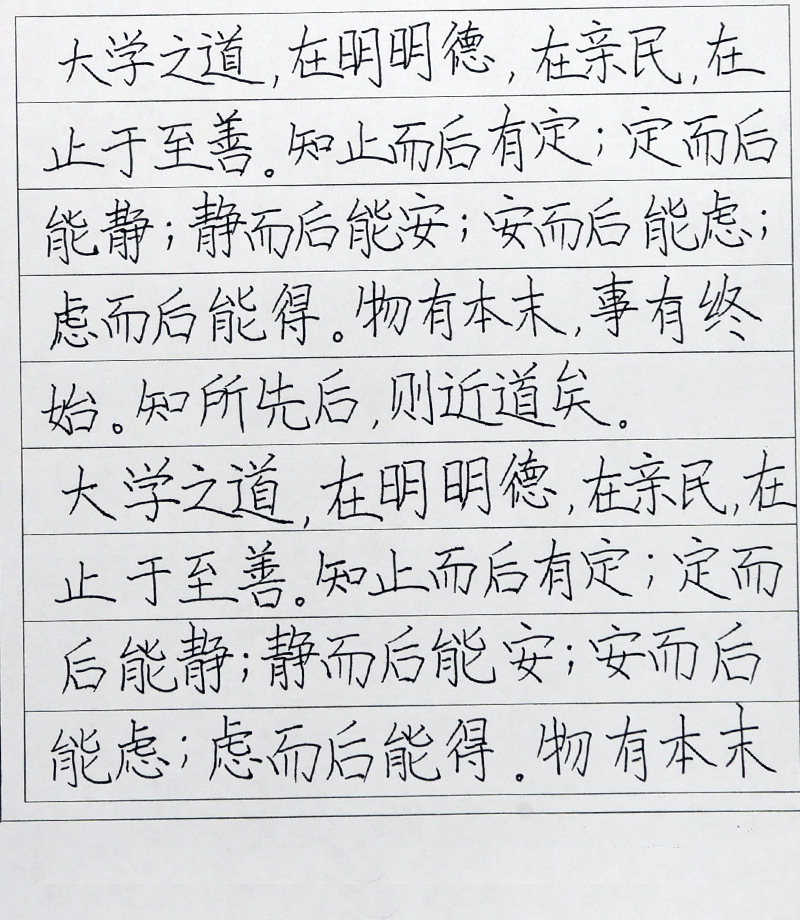 大学之道,在明明德,在亲民,在
止于至善。知止而后有定;定而后
能静;静而后能安;安而后能虑;
虑而后能得。物有本末,事有终
始。知所先后,则近道矣。
大学之道,在明明德,在亲民,在
止于至善。知止而后有定;定而
后能静;静而后能安;安而后
能虑;虑而后能得。物有本末